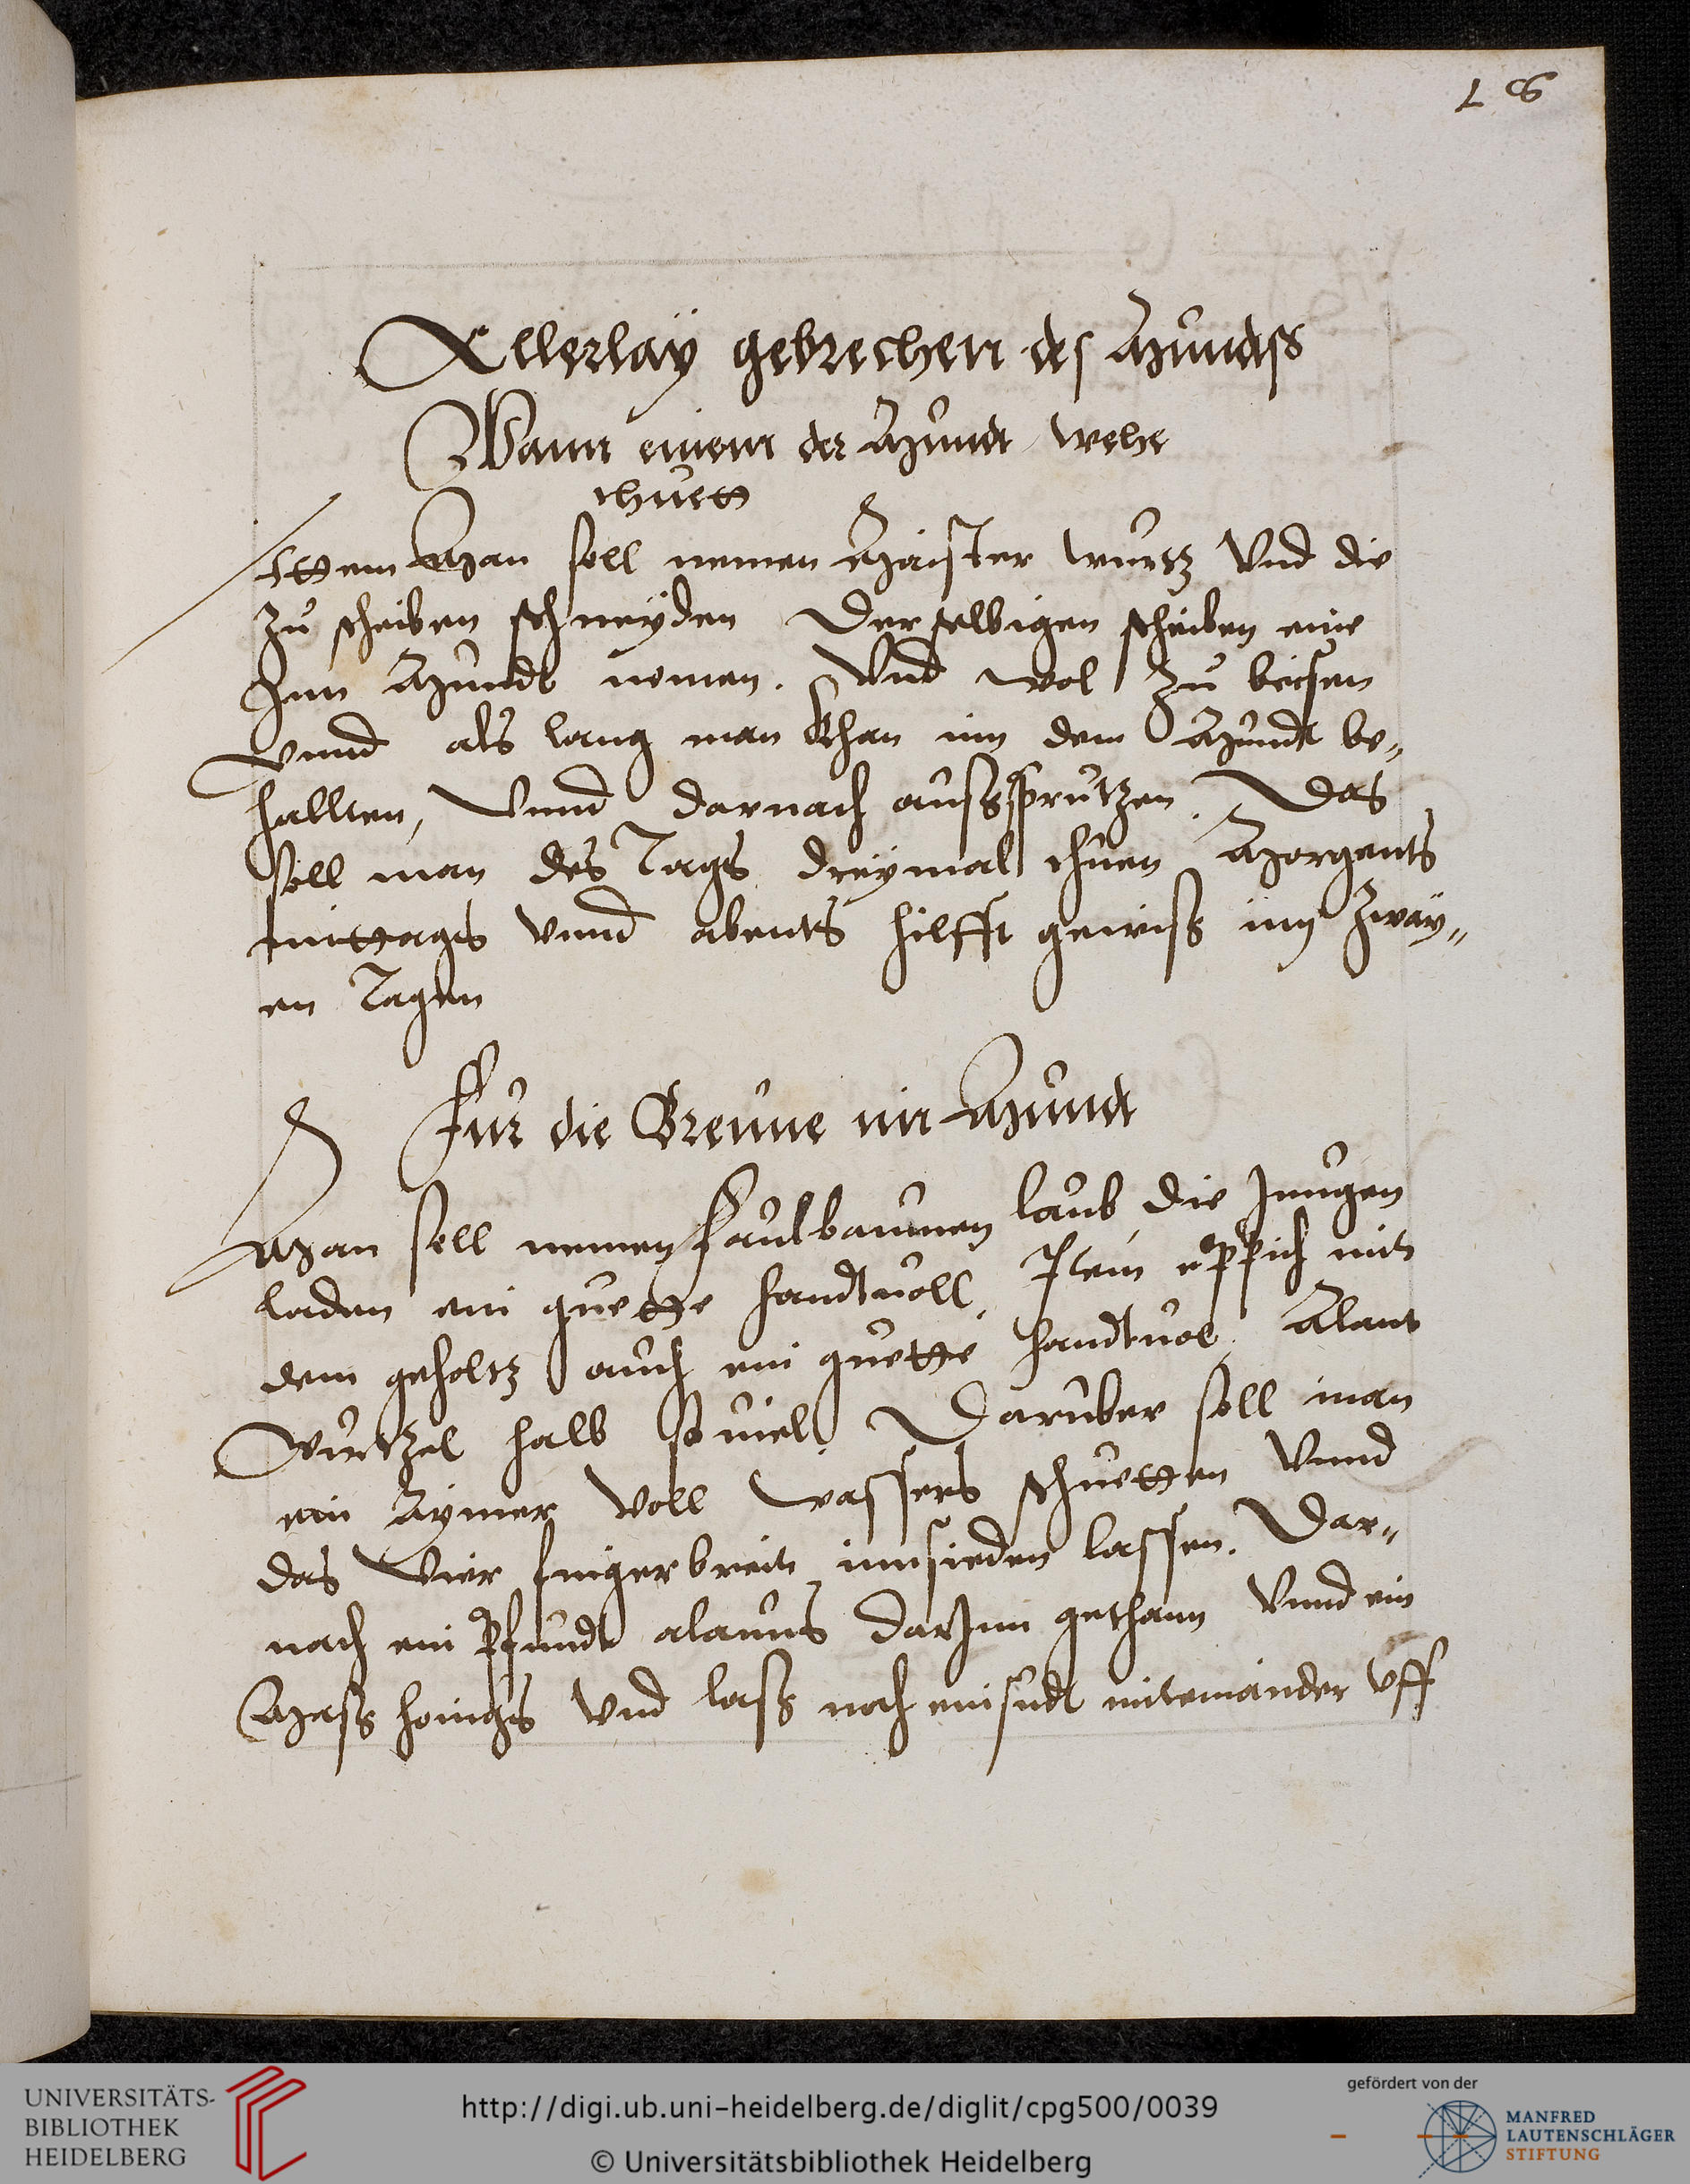 Allerlaÿ gebrechen des Mundtß
Wann einem der Mundt wehe
thuett
Ittem Man soll nemen Maister wurtz Vnd die
zu scheiben schneyden Der selbigen scheiben eine
Inn Mundt nemen. Vnd wol zu beissen
vnnd als lang man khan inn dem Mundt be„
hallten, Vnnd darnach aussprützen. Das
soll man des Tags dreymal thuen Morgents
mittags vnnd abents hilfft gewiß inn zwaÿ„
en Tagen
Fur die Breune im Mundt
Man soll nemen faulbaumen laub die Jungen
laden ein guette handtuoll, Item eppich mit
dem geholtz auch ein guette handtuol, Alant
Wurtzel halb souiel. Daruber soll man
ein Aymer voll wassers schuetten Vnnd
das Vier finger breit innsieden lassen. Dar„
nach ein Pfundt alauns darJnn gethann Vnnd ein
Mass honigs Vnd lass noch ein sudt miteinander vff
UNIVERSITÄTS-
BIBLIOTHEK
HEIDELBERG
http://digi.ub.uni-heidelberg.de/diglit/cpg500/0039
© Universitätsbibliothek Heidelberg
gefördert von der
MANFRED
LAUTENSCHLÄGER
STIFTUNG